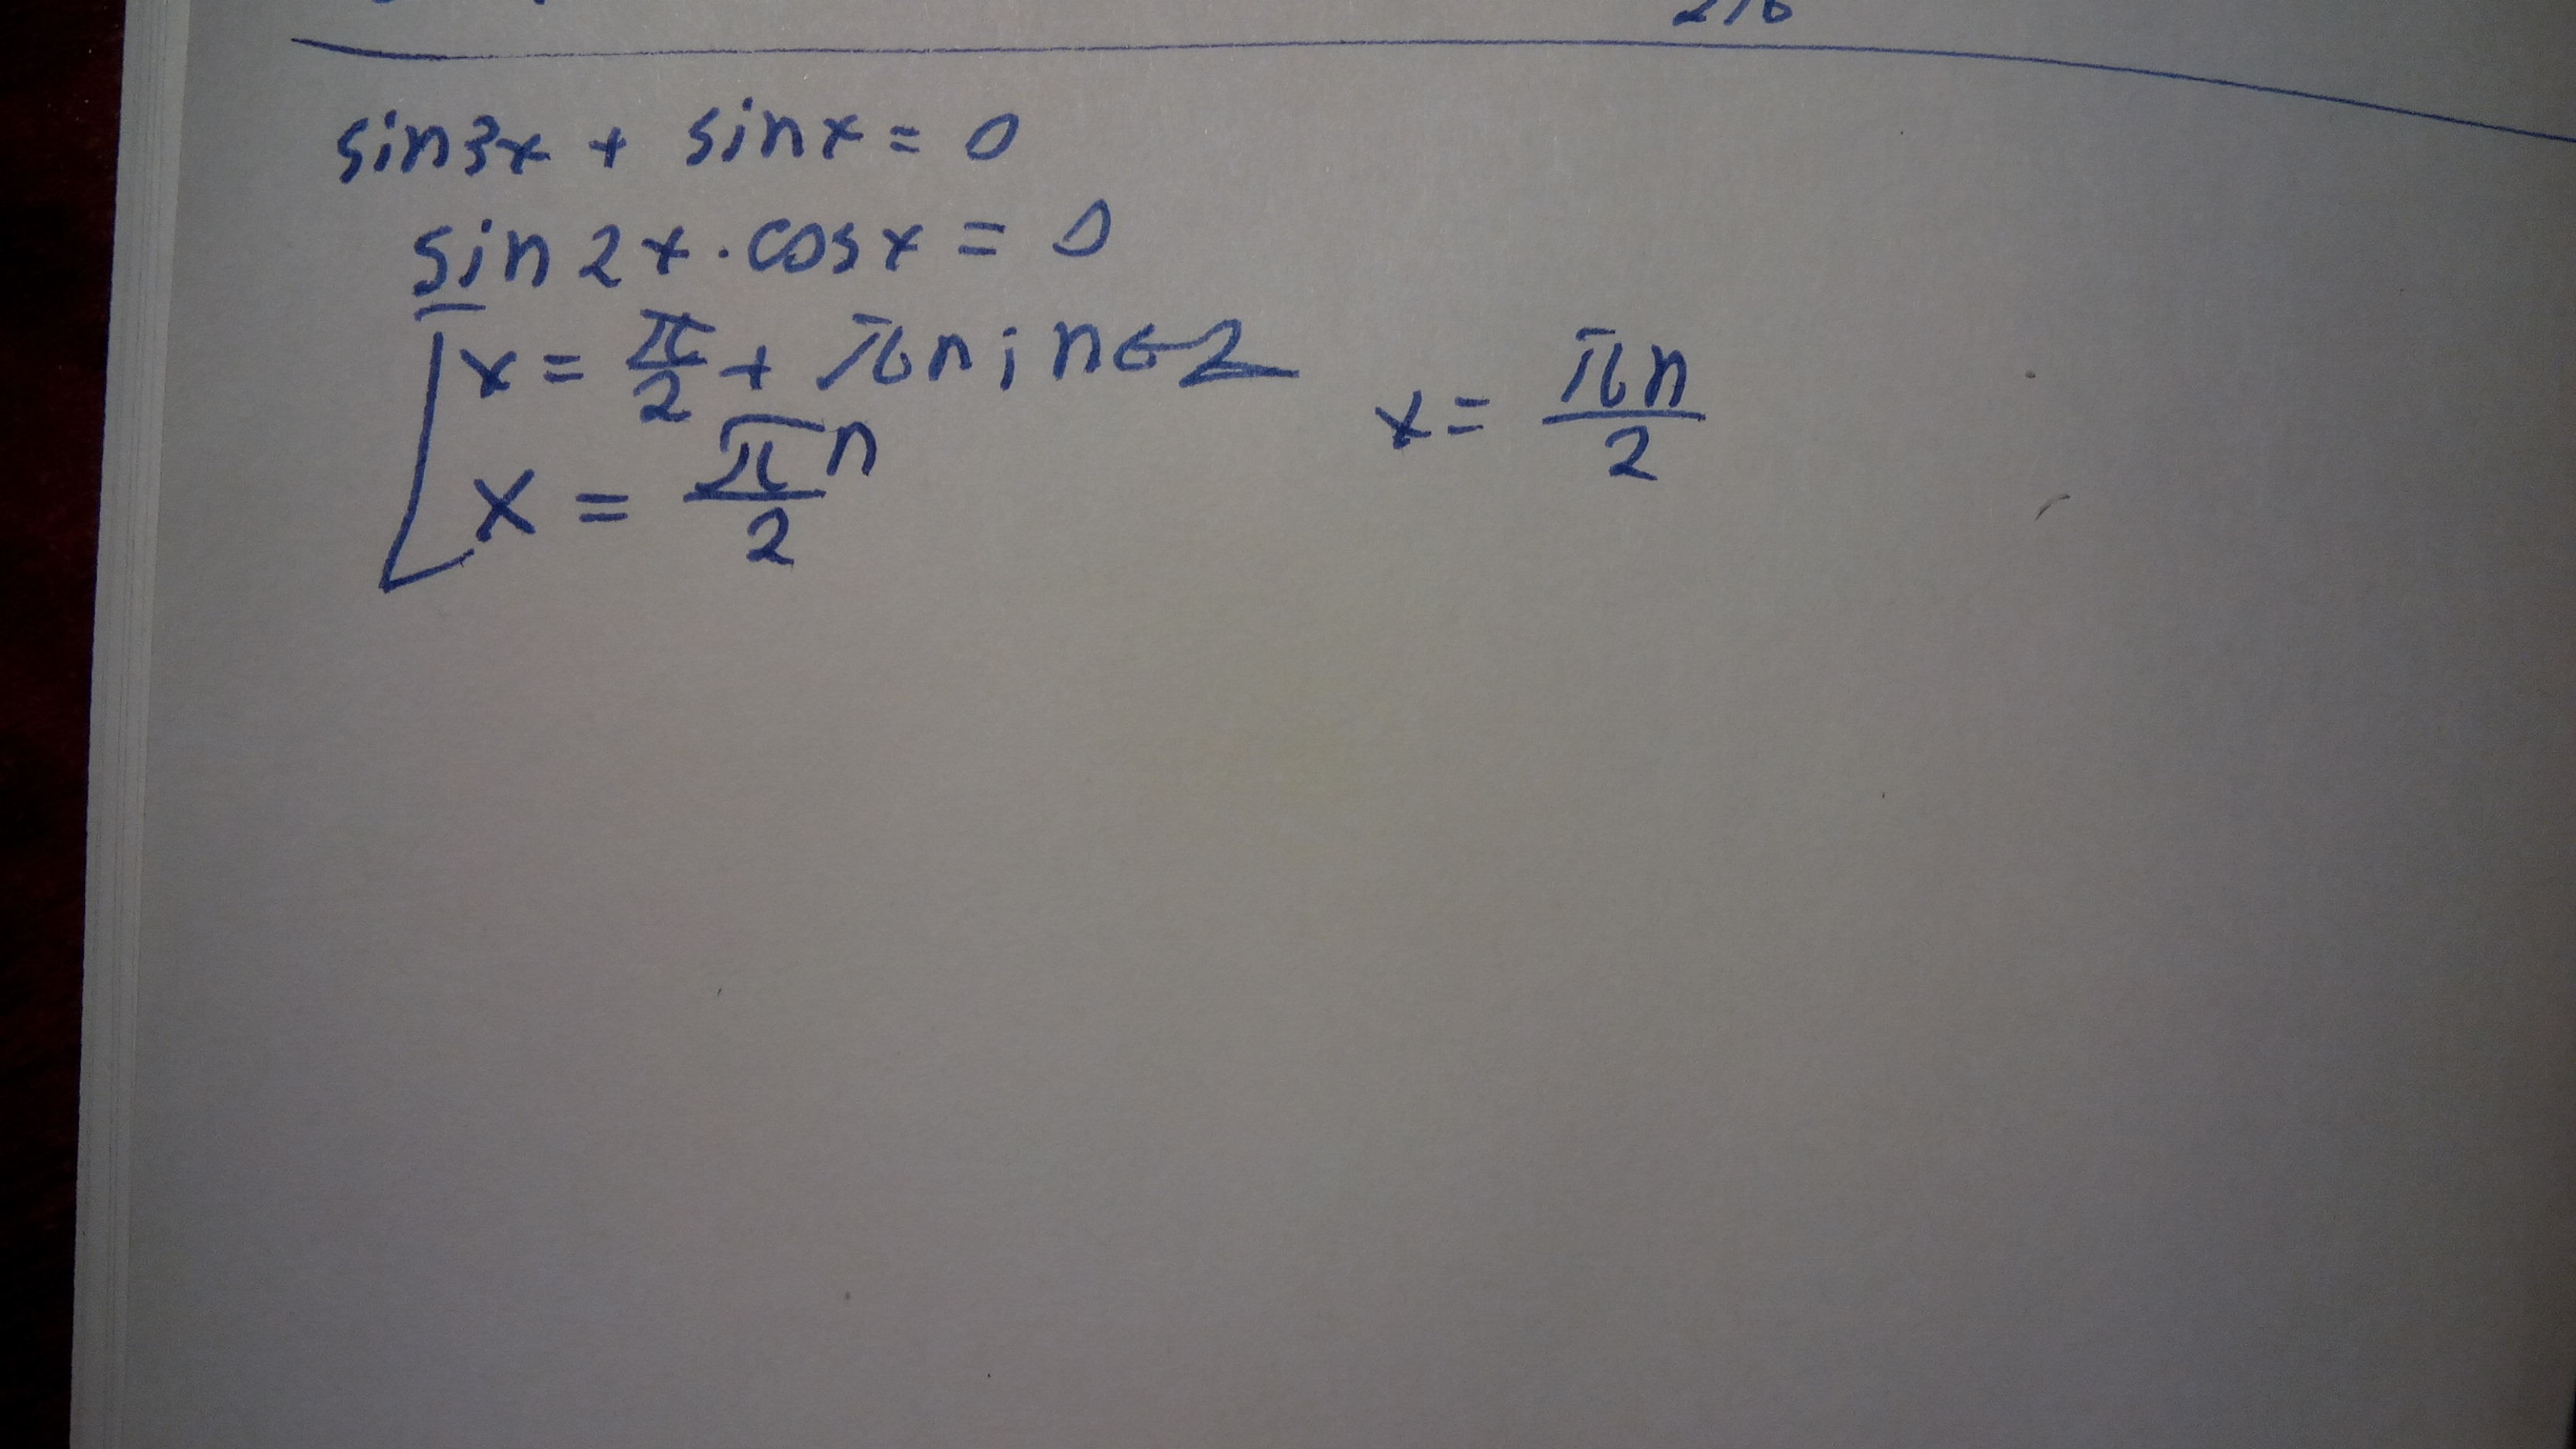 sin3x + sinx = 0
sin2x · cosx = 0
x = π/2 + πn ; n ∈ Z
x = π/2 n
x = πn/2